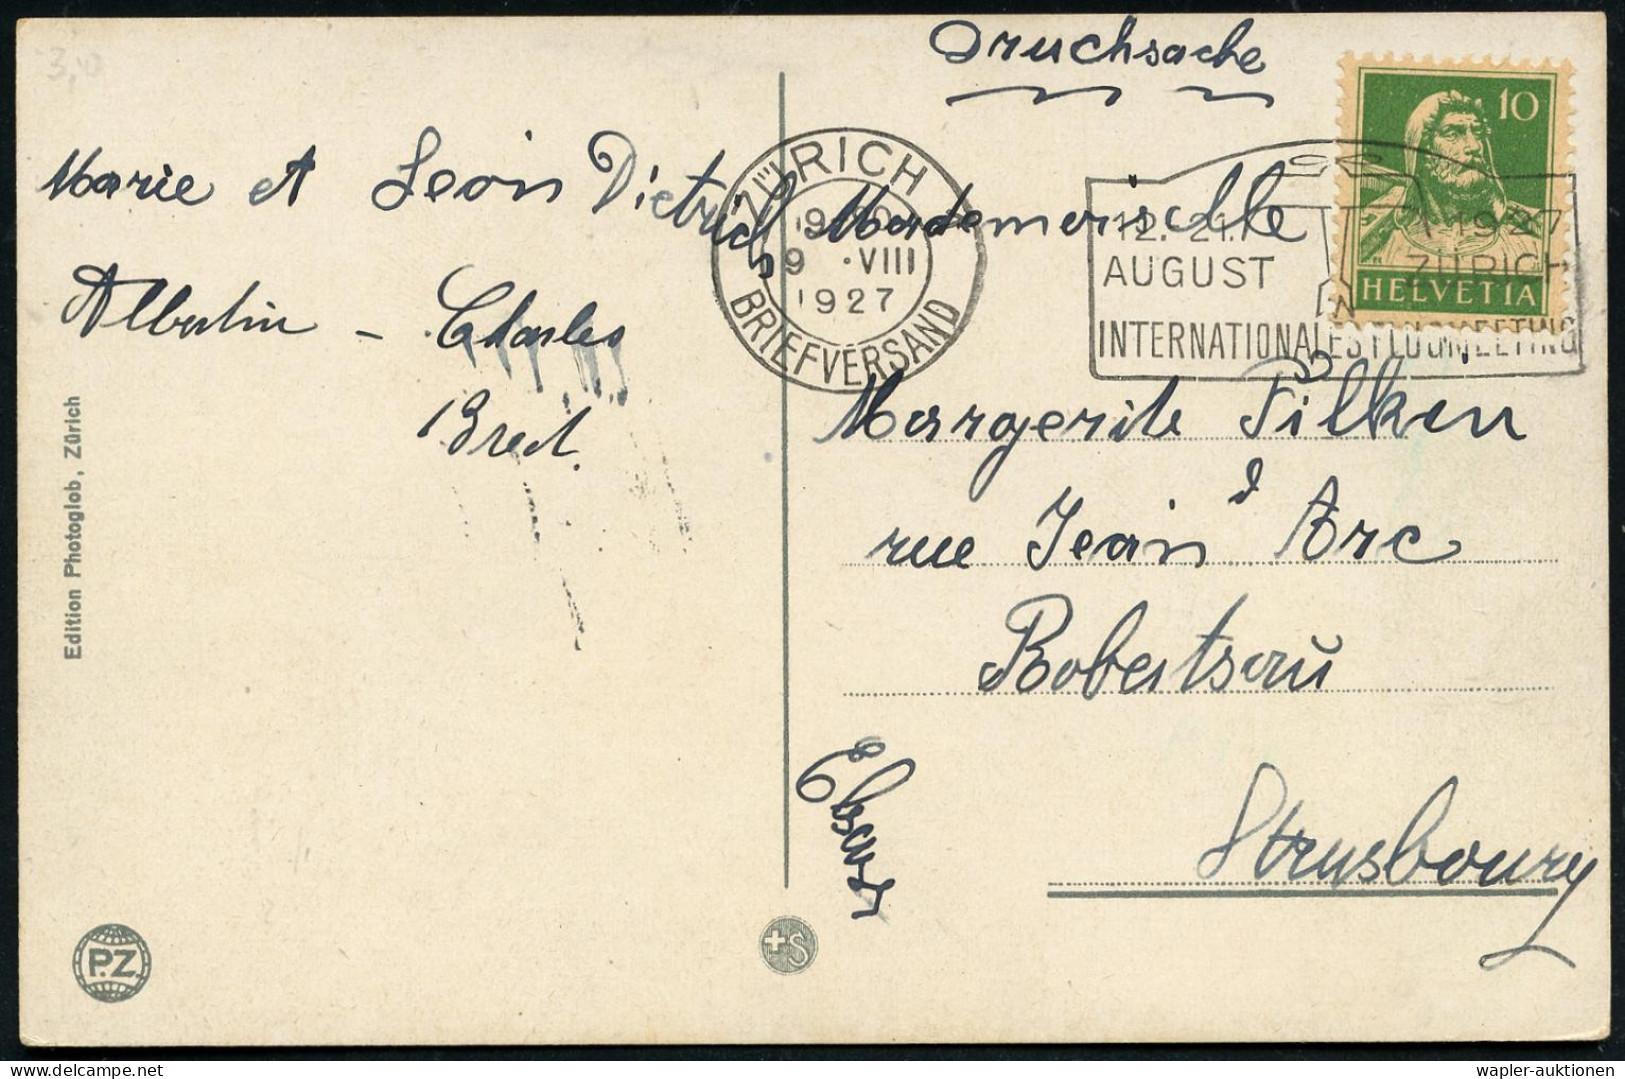 Druchsache
10
HELVETIA
ZÜRICH
9 ·VIII
1927
BRIEFVERSAND
12.-21.
AUGUST
1927
ZÜRICH
INTERNATIONALES FLUGMEETING
Marie et Leon Dietrich
Albertin - Charles
Breit.
Mademoiselle
Margerite Pilkin
rue Jean d'Arc
Robertsau
Strasbourg
Elsass
Edition Photoglob, Zürich
P.Z.
+S
3,0
wapler-auktionen